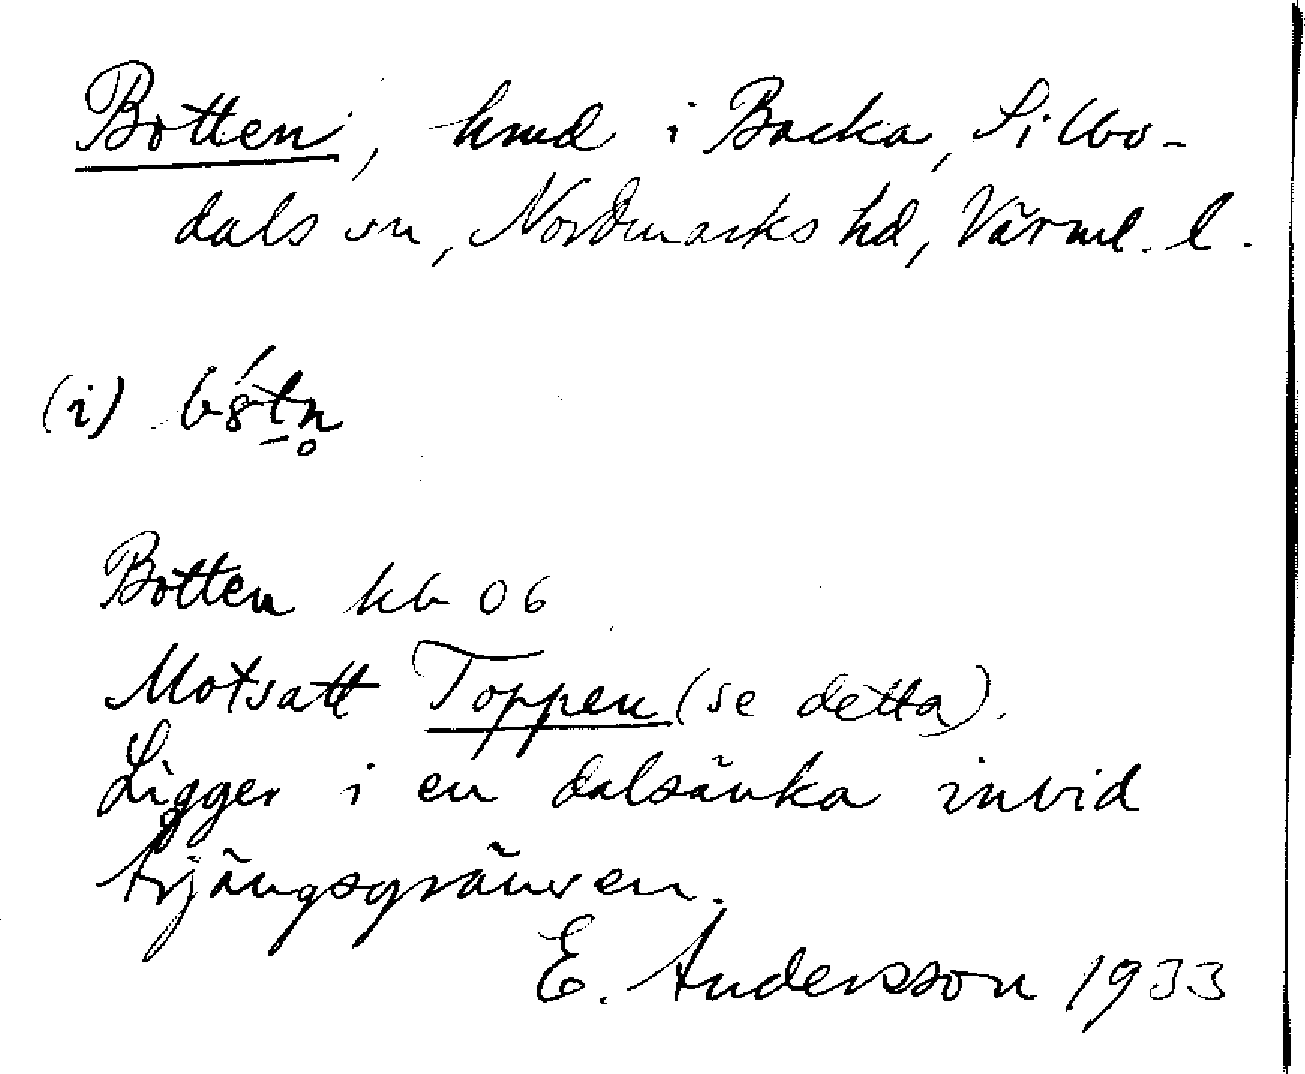 Botten, hmd i Backa, Silbo-
dals sn, Nordmarks hd, Värml. l.
(i)
Botten kb 06
Motsatt Toppen (se detta).
Ligger i en dalsänka invid
Årjängsgränsen.
E. Andersson 1933